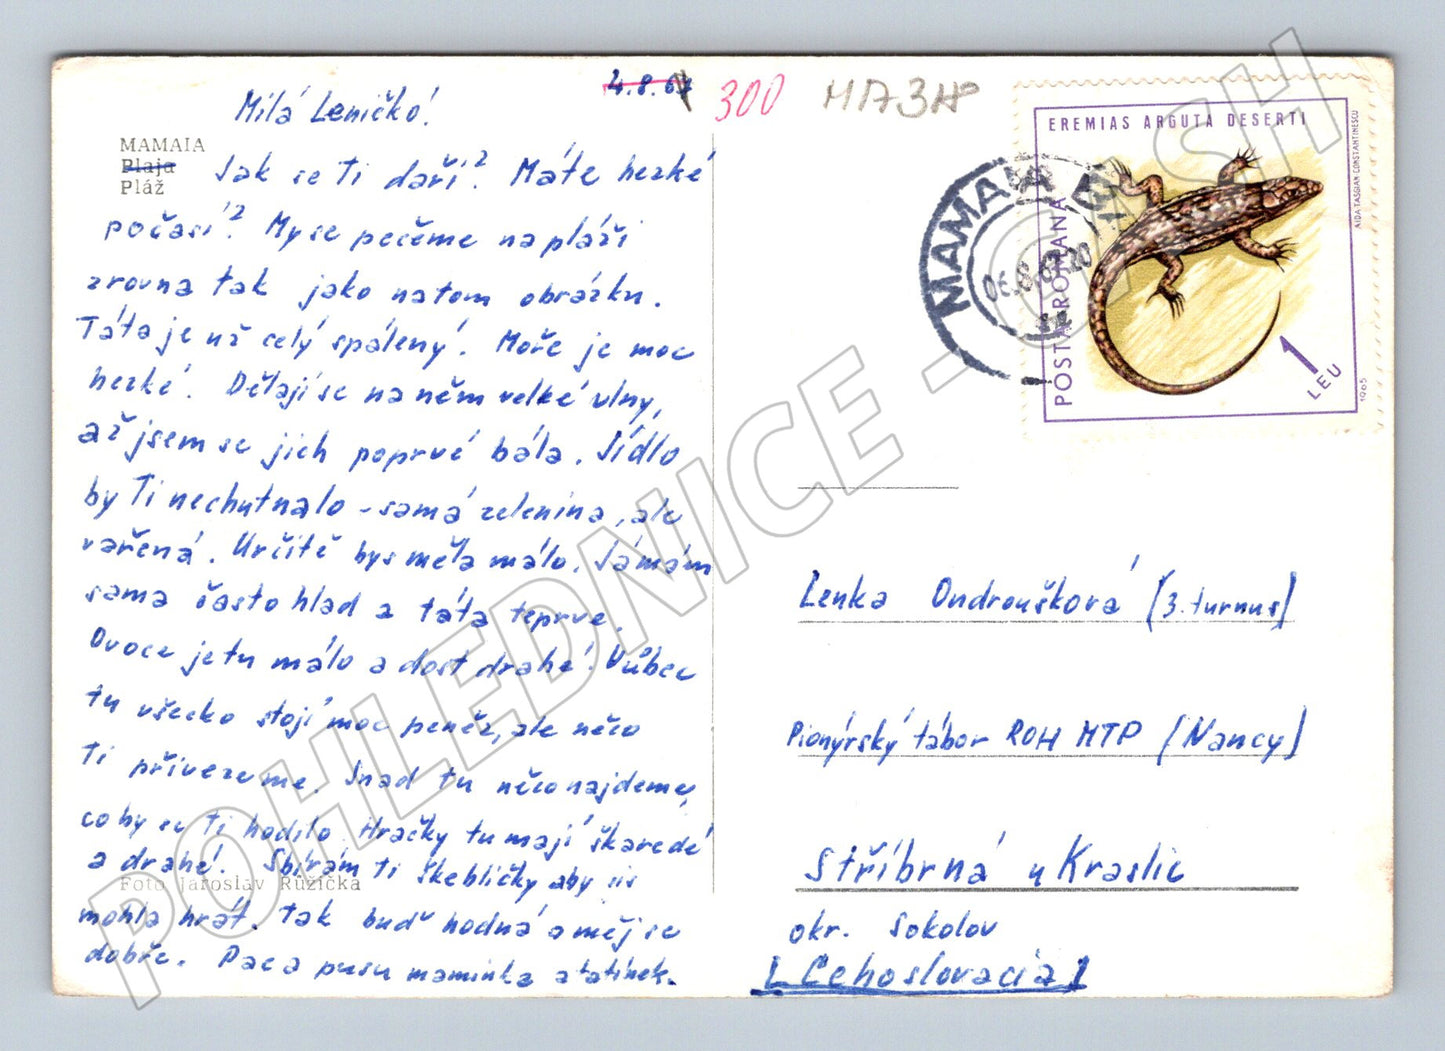 4.8.67
300
Milá Leničko!
MAMAIA
Plaja
Pláž
Jak se Ti daří? Máte hezké
počasí? My se pečeme na pláži
zrovna tak jako na tom obrázku.
Táta je už celý spálený. Moře je moc
hezké. Dělají se na něm velké vlny,
až jsem se jich poprvé bála. Jídlo
by Ti nechutnalo - samá zelenina, ale
vařená. Určitě bys měla málo. Já mám
sama často hlad a táta teprve.
Ovoce je tu málo a dost drahé. Vůbec
tu všecko stojí moc peněz, ale něco
Ti přivezeme. Snad tu něco najdeme,
co by se Ti hodilo. Hračky tu mají škaredé
a drahé. Sbírám ti škebličky aby sis
Foto Jaroslav Růžička
mohla hrát. Tak buď hodná a měj se
dobře. Pac a pusu maminka a tatínek.
EREMIAS ARGUTA DESERTI
POSTA ROMANA
AIDA TASGIAN CONSTANTINESCU
1 LEU
1965
MAMAIA
Lenka Ondroušková (3. turnus)
Pionýrský tábor ROH MTP (Nancy)
Stříbrná u Kraslic
okr. Sokolov
[Cehoslovacia]
POHLEDNICE - CASH